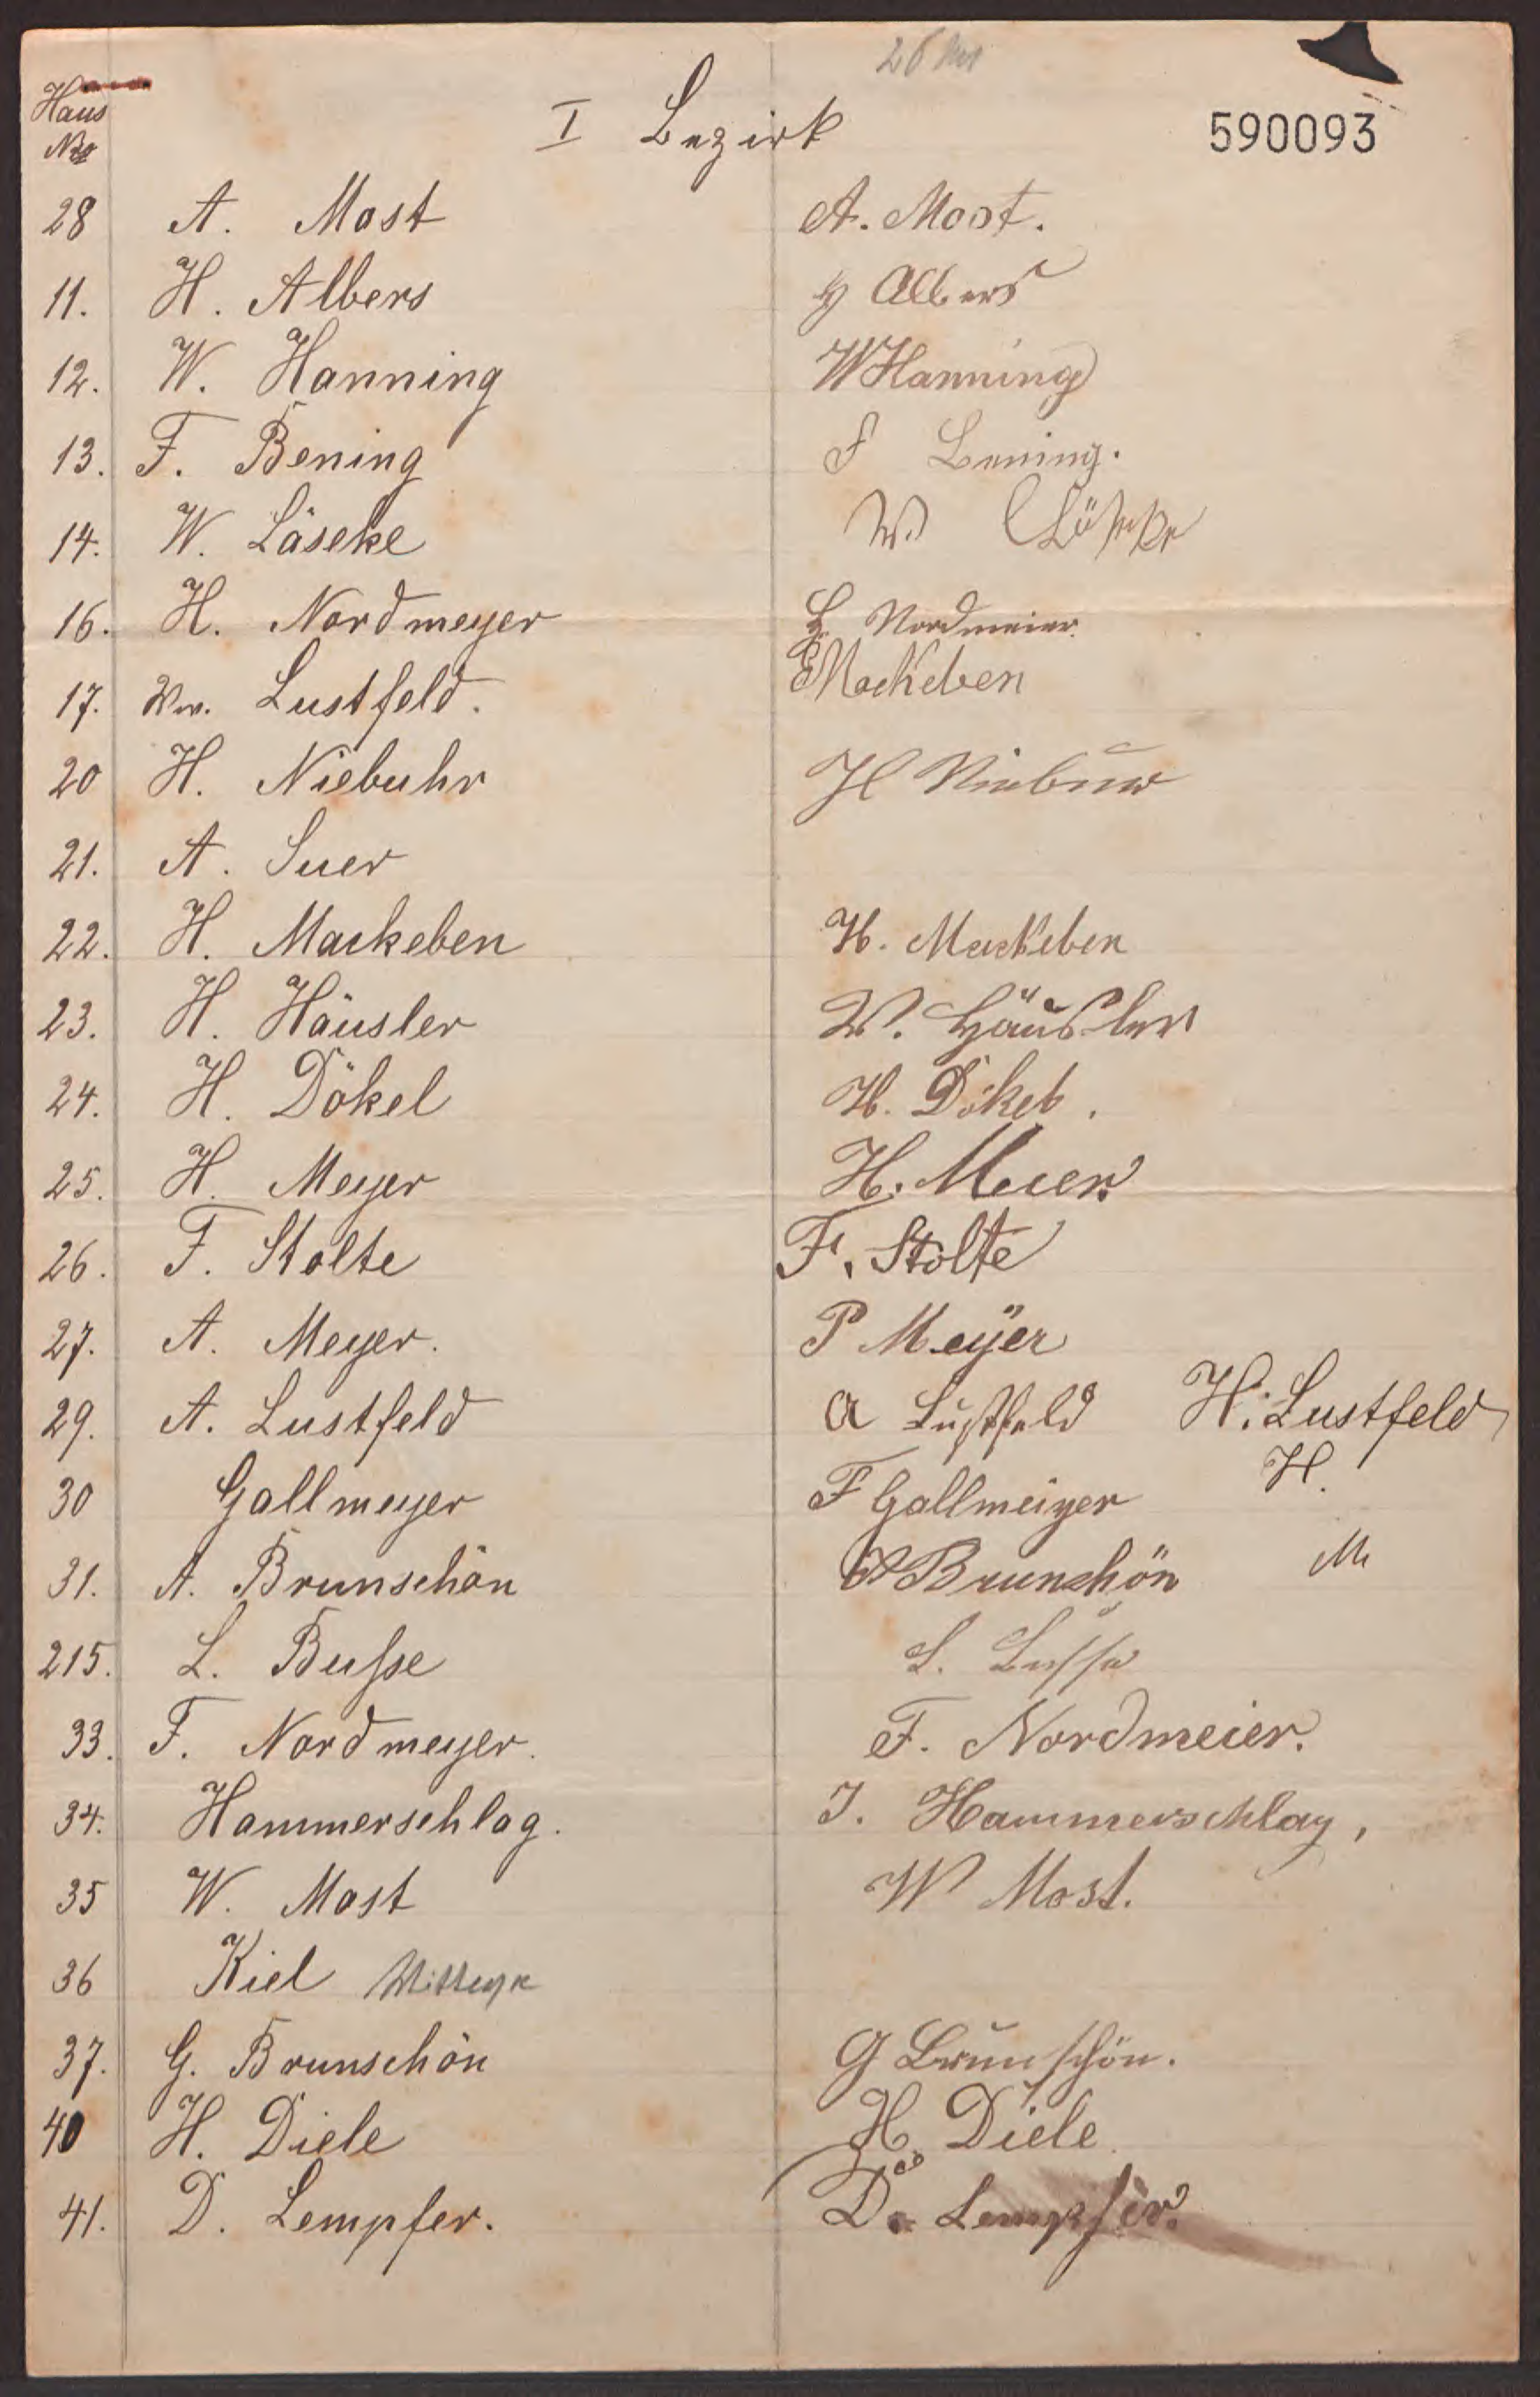 Haus
No
I Bezirk
590093
28 A. Most A. Most.
11. H. Albers H Albers
12. W. Hanning W Hanning
13. F. Bening F Bening.
14. W. Läseke W.
16. H. Nordmeyer H. Nordmeier.
17. Ww. Lustfeld. Mackeben
20 H. Niebuhr H Niebuhr
21. A. Suer
22. H. Mackeben H. Mackeben
23. H. Häusler W. Häusler
24. H. Dökel H. Dökel.
25. H. Meyer H. Meier.
26. F. Stolte F. Stolte
27. A. Meyer. P Meÿer
29. A. Lustfeld A Lustfeld H. Lustfeld
30 Gallmeyer F Gallmeiyer H.
31. A. Brunschön A Brunschön M
215. L. Busse L. Busse
33. F. Nordmeyer. F. Nordmeier.
34. Hammerschlag. J. Hammerschlag,
35 W. Most W Most.
36 Kiel
37. G. Brunschön G Brunschön.
40 H. Diele H. Diele.
41. D. Lempfer. D. Lempfer.